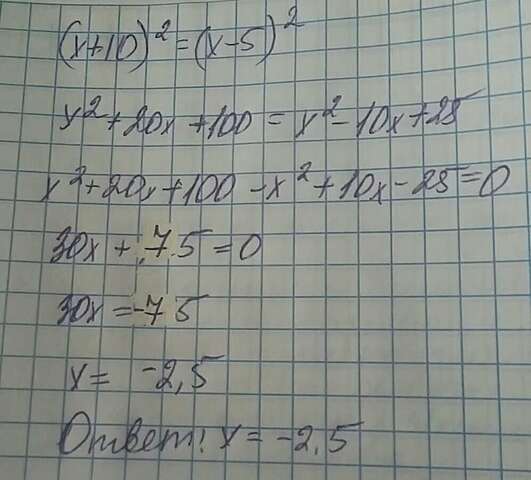 (x+10)² = (x-5)²
x² + 20x + 100 = x² - 10x + 25
x² + 20x + 100 - x² + 10x - 25 = 0
30x + 75 = 0
30x = -75
x = -2,5
Ответ: x = -2,5